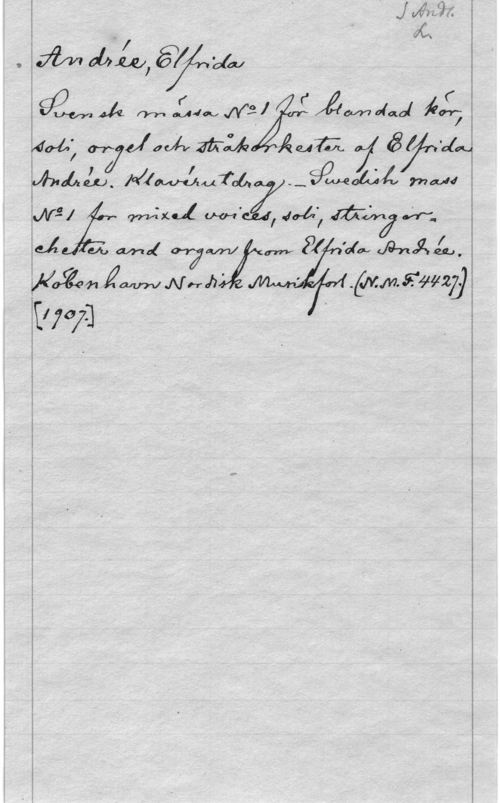 J Andr.
Andrée, Elfrida
Svensk mässa No 1 för blandad kör,
soli, orgel och stråkorkester af Elfrida
Andrée. Klavérutdrag. - Swedish mass
No 1 for mixed voices, soli, stringor=
chester and organ from Elfrida Andrée.
Köbenhavn Nordisk Musikforl. (N.M.F. 4427.)
[1907.]